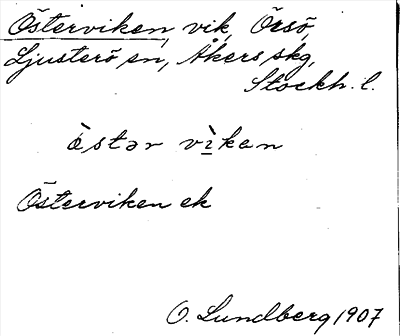 Österviken, vik, Örsö,
Ljusterö sn, Åkers skg,
Stockh. l.
ö̀stər vì̱kən
Österviken ek
O. Lundberg 1907